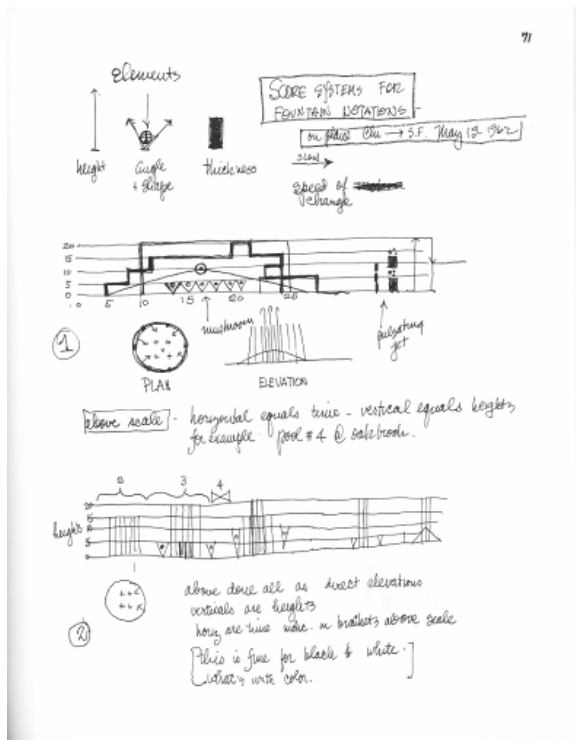 71
Elements
SCORE SYSTEMS FOR
FOUNTAIN NOTATIONS
on plane Chi → S.F. May 12 1962
height
angle
+ shape
thickness
slow
speed of
change
20
15
10
5
0
0 5 10 15 20 25
mushroom
pulsating
jet
1
PLAN
ELEVATION
above scale - horizontal equals time - vertical equals heights
for example pool #4 @ oakbrook.
2 3 4
20
15
heights
5
0
2
above done all as direct elevations
verticals are heights
horiz are time in brackets above scale
[this is fine for black & white.
what's with color.]